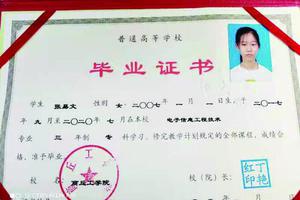 普通高等学校
毕业证书
学生 张易文 性别 女，二〇〇七年 一 月 一 日生，于二〇一七
年 九 月至二〇二〇年 七 月在本校 电子信息工程技术
专业 三 年制 专 科学习，修完教学计划规定的全部课程，成绩合
格，准予毕业。
校 名：商丘工学院
校（院）长：